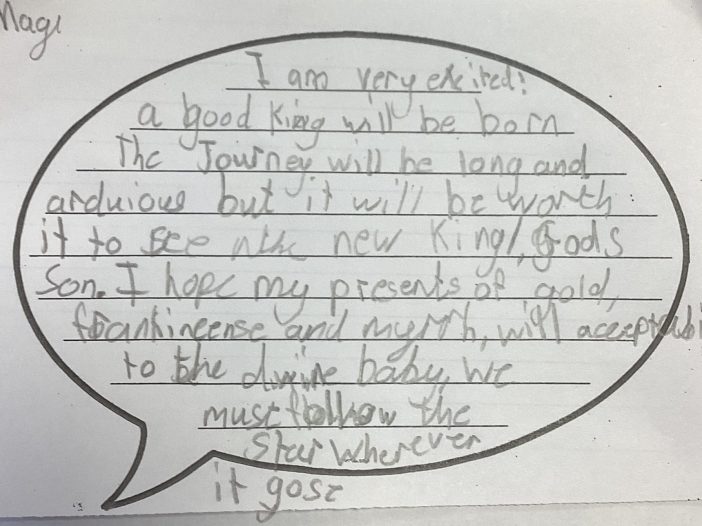 Magi
I am very excited:
a good King will be born
The Journey will be long and
arduious but it will be worth
it to see the new King, Gods
Son. I hope my presents of gold,
frankincense and myrrh, will acceptabl
to the divine baby, we
must follow the
Star wherever
it gose